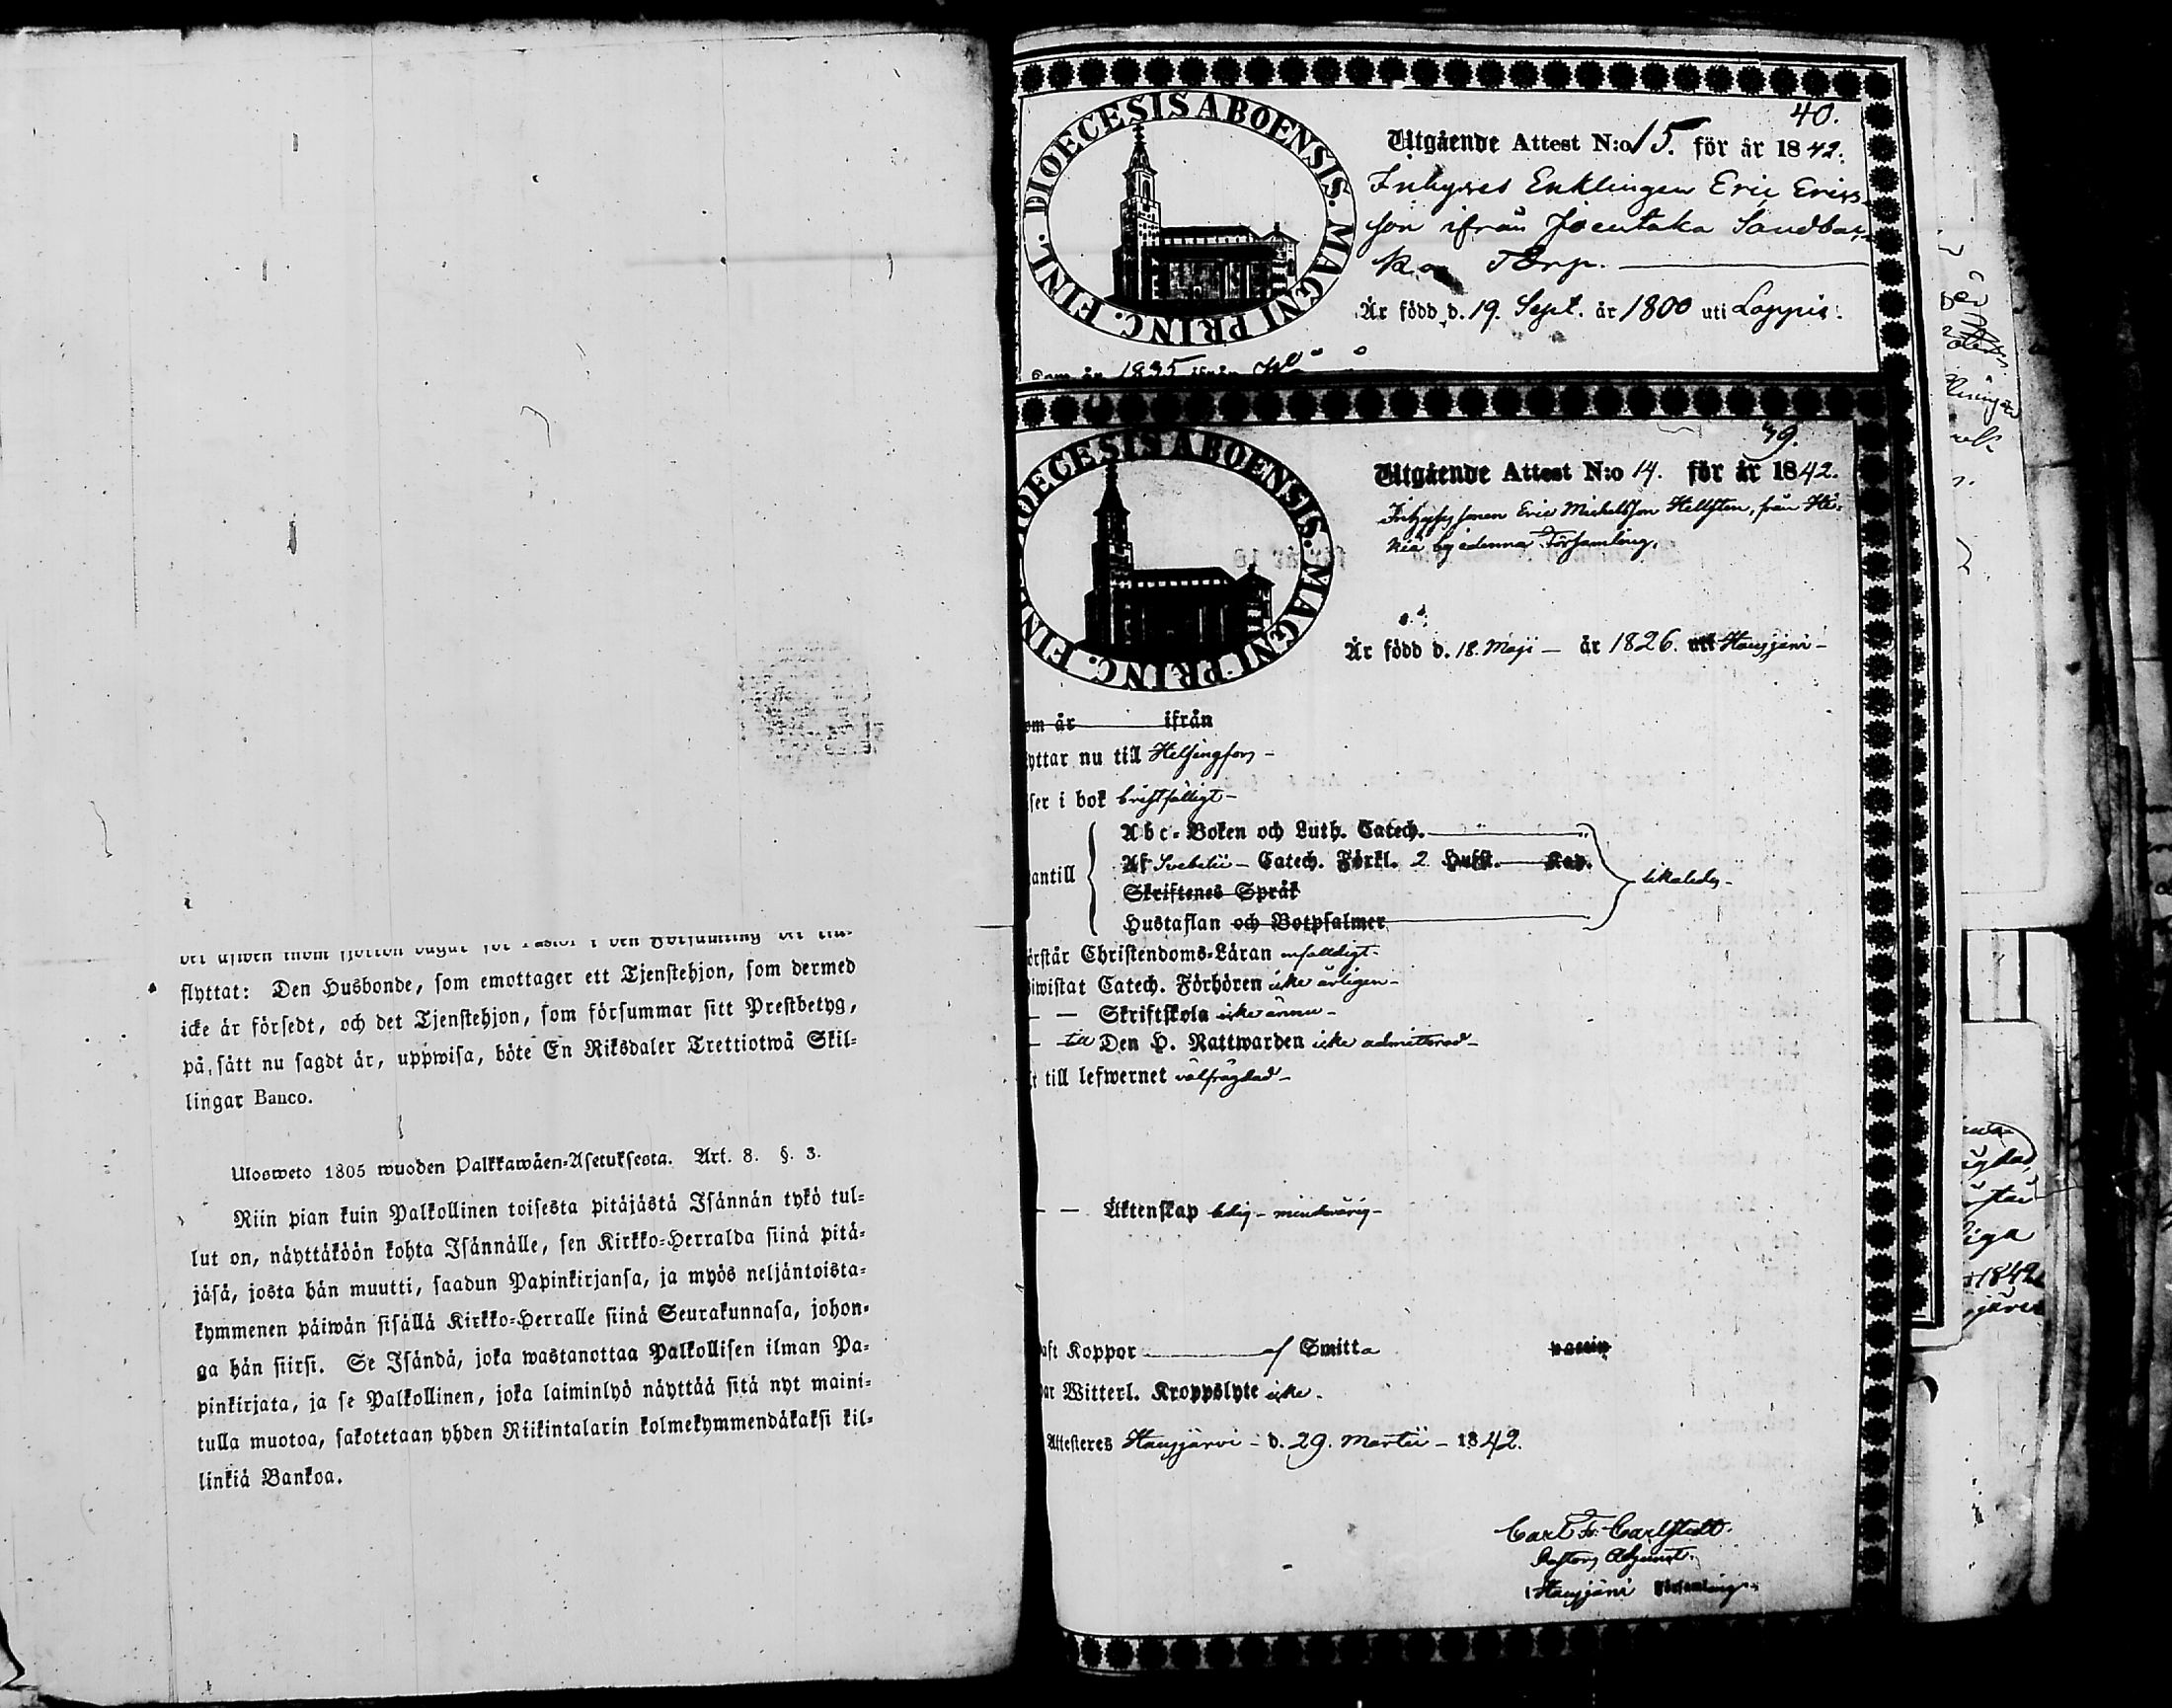 flyttat: Den Husbonde, som emottager ett Tjenstehjon, som dermed
icke är försedt, och det Tjenstehjon, som försummar sitt Prestbetyg,
på sätt nu sagdt är, uppwisa, böte En Riksdaler Trettiotwå Skil-
lingar Banco.
Ulosweto 1805 wuoden Palkkawäen-Asetuksesta. Art. 8. §. 3.
Niin pian kuin Palkollinen toisesta pitäjästä Isännän tykö tul-
lut on, näyttäköön kohta Isännälle, sen Kirkko-Herralda siinä pitä-
jäsä, josta hän muutti, saadun Papinkirjansa, ja myös neljäntoista-
kymmenen päiwän sisällä Kirkko-Herralle siinä Seurakunnasa, johon-
ga hän siirsi. Se Isändä, joka wastanottaa Palkollisen ilman Pa-
pinkirjata, ja se Palkollinen, joka laiminlyö näyttää sitä nyt maini-
tulla muotoa, sakotetaan yhden Riikintalarin kolmekymmendäkaksi kil-
linkiä Bankoa.
40.
DIOECESIS ABOENSIS. MAGNI PRINC. FINL.
Utgående Attest N:o 15. för år 1842.
Inhyses Enklingen Eric Erics-
son ifrån Joentaka Sandbac-
ka Torp.
Är född d. 19. Sept. år 1800 uti Loppis.
Som år 1835 ifrån
39.
OECESIS ABOENSIS. MAGNI PRINC. FIN
Utgående Attest N:o 14. för år 1842.
Inhyses sonen Eric Michelsson Hellsten, från Hi-
kiä by i denna Församling.
Är född d. 18. Maji – år 1826. uti Hausjärvi –
om år ifrån
yttar nu till Helsingfors –
ser i bok bristfälligt –
Abc-Boken och Luth. Catech.
antill Af Svebelii – Catech. Förkl. 2 Hufst. Kap. likaledes –
Skriftenes Språk
Hustaflan och Botpsalmer
örstår Christendoms-Läran enfaldigt –
iwistat Catech. Förhören icke årligen –
– – Skriftskola icke ännu –
– till Den H. Nattwarden icke admitterad –
r till lefwernet välfrägdad –
– – Äktenskap ledig – minderårig –
aft Koppor af Smitta vaccin
ar Witterl. Kroppslyte icke –
Attesteres Hausjärvi – d. 29. Martii – 1842.
Carl Fr. Carlstedt.
Pastors Adjunct.
i Hausjärvi Församling.